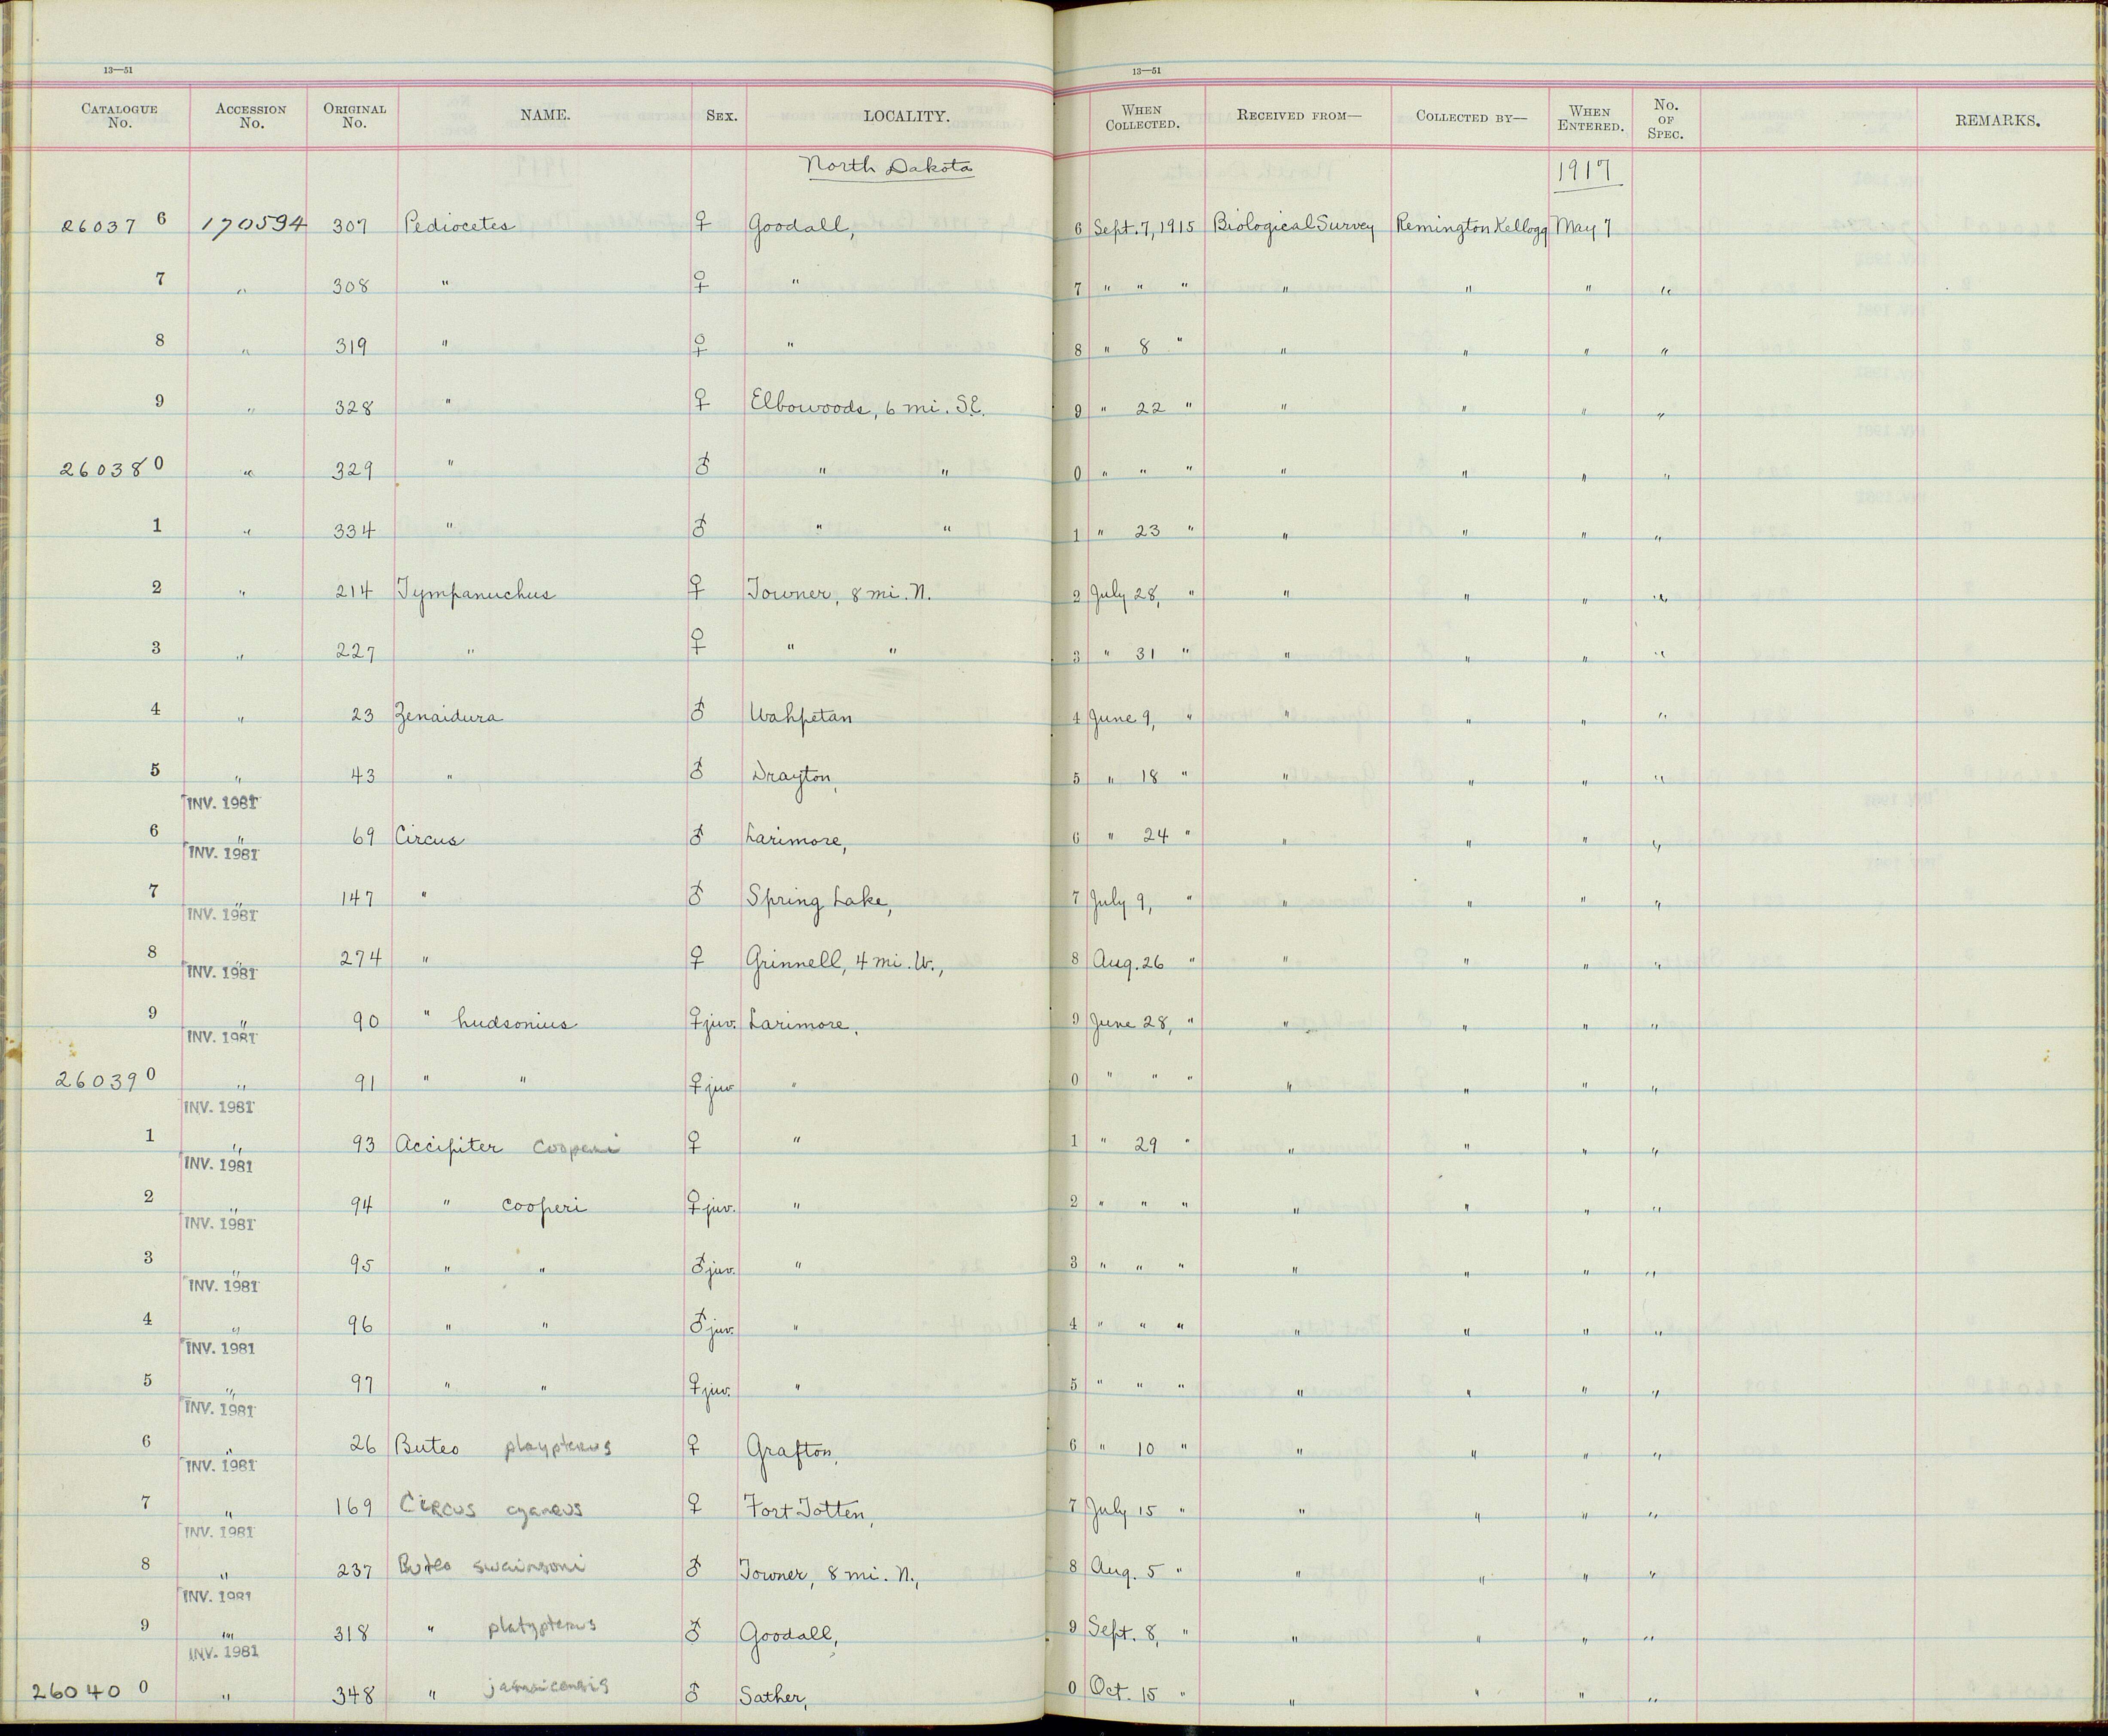 13—51 13—51
CATALOGUE No. ACCESSION No. ORIGINAL No. NAME. SEX. LOCALITY. WHEN COLLECTED. RECEIVED FROM— COLLECTED BY— WHEN ENTERED. No. OF SPEC. REMARKS.
North Dakota 1917
26037 6 170594 307 Pediocetes ♀ Goodall, 6 Sept. 7, 1915 Biological Survey Remington Kellogg May 7
7 " 308 " ♀ " 7 " " " " " " "
8 " 319 " ♀ " 8 " 8 " " " " "
9 " 328 " ♀ Elbowoods, 6 mi. S.E. 9 " 22 " " " " "
26038 0 " 329 " ♂ " " 0 " " " " " " "
1 " 334 " ♂ " " 1 " 23 " " " " "
2 " 214 Tympanuchus ♀ Towner, 8 mi. N. 2 July 28, " " " " "
3 " 227 " ♀ " " 3 " 31 " " " " "
4 " 23 Zenaidura ♂ Wahpetan 4 June 9, " " " " "
5 " 43 " ♂ Drayton, 5 " 18 " " " " "
INV. 1981
6 " 69 Circus ♂ Larimore, 6 " 24 " " " " "
INV. 1981
7 " 147 " ♂ Spring Lake, 7 July 9, " " " " "
INV. 1981
8 " 274 " ♀ Grinnell, 4 mi. W., 8 Aug. 26 " " " " "
INV. 1981
9 " 90 " hudsonius ♀ juv. Larimore, 9 June 28, " " " " "
INV. 1981
26039 0 " 91 " " ♀ juv " 0 " " " " " " "
INV. 1981
1 " 93 Accipiter cooperi ♀ " 1 " 29 " " " " "
INV. 1981
2 " 94 " cooperi ♀ juv. " 2 " " " " " " "
INV. 1981
3 " 95 " " ♂ juv. " 3 " " " " " " "
INV. 1981
4 " 96 " " ♂ juv. " 4 " " " " " " "
INV. 1981
5 " 97 " " ♀ juv. " 5 " " " " " " "
INV. 1981
6 " 26 Buteo playpterus ♀ Grafton, 6 " 10 " " " " "
INV. 1981
7 " 169 Circus cyaneus ♀ Fort Totten, 7 July 15 " " " " "
INV. 1981
8 " 237 Buteo swainsoni ♂ Towner, 8 mi. N., 8 Aug. 5 " " " " "
INV. 1981
9 " 318 " platypterus ♂ Goodall, 9 Sept. 8, " " " " "
INV. 1981
26040 0 " 348 " jamaicensis ♂ Sather, 0 Oct. 15 " " " " "